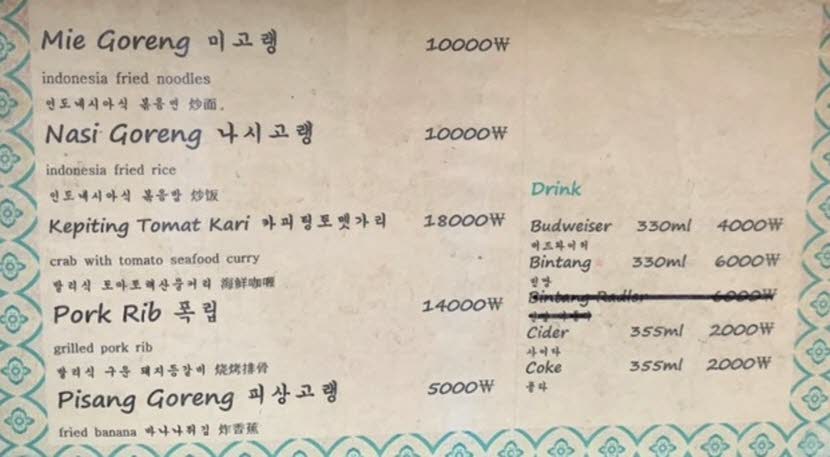 Mie Goreng 미고랭 10000₩
indonesia fried noodles
인도네시아식 볶음면 炒面。
Nasi Goreng 나시고랭 10000₩
indonesia fried rice
인도네시아식 볶음밥 炒饭
Kepiting Tomat Kari 카피팅토멧가리 18000₩
crab with tomato seafood curry
발리식 토마토해산물커리 海鲜咖喱
Pork Rib 폭립 14000₩
grilled pork rib
발리식 구운 돼지등갈비 烧烤排骨
Pisang Goreng 피상고랭 5000₩
fried banana 바나나튀김 炸香蕉
Drink
Budweiser 330ml 4000₩
버드와이저
Bintang 330ml 6000₩
빈땅
Bintang Radler 6000₩
빈땅
Cider 355ml 2000₩
사이다
Coke 355ml 2000₩
콜라